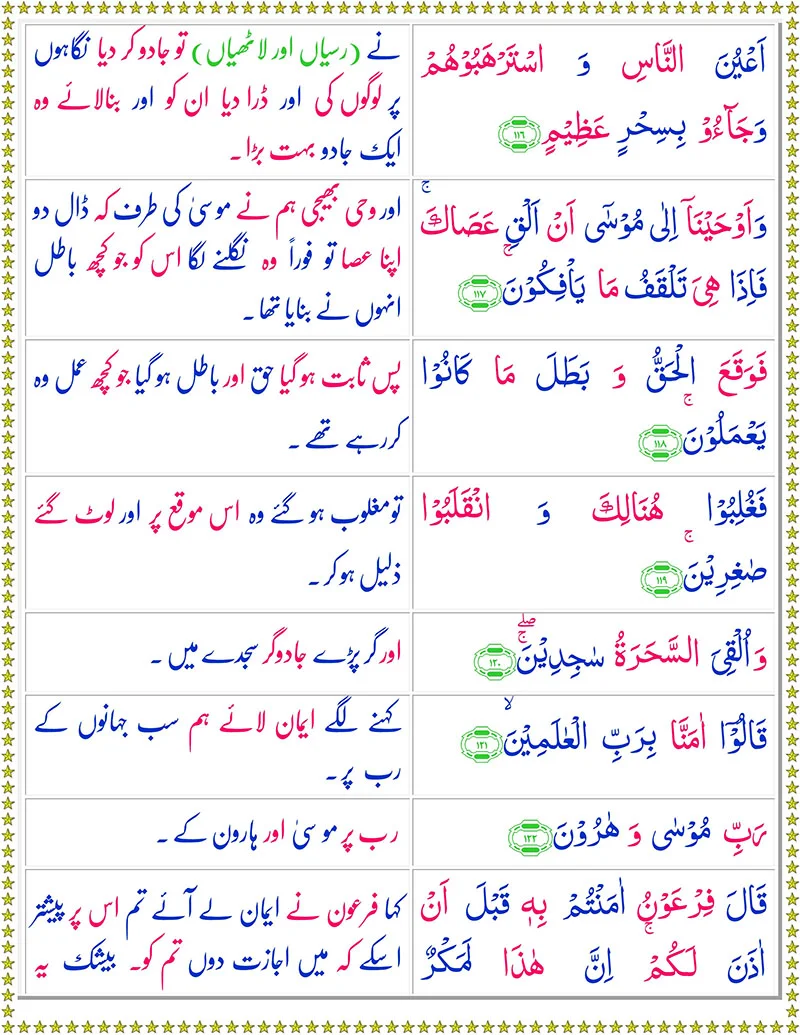 اَعۡيُنَ النَّاسِ وَ اسۡتَرۡهَبُوۡهُمۡ
وَجَآءُوۡ بِسِحۡرٍ عَظِيۡمٍ ۝۱۱۶
نے (رسیاں اور لاٹھیاں) تو جادو کر دیا نگاہوں
پر لوگوں کی اور ڈرا دیا ان کو اور بنالائے وہ
ایک جادو بہت بڑا۔
وَاَوۡحَيۡنَاۤ اِلٰى مُوۡسٰٓى اَنۡ اَلۡقِ عَصَاكَ‌ۚ
فَاِذَا هِىَ تَلۡقَفُ مَا يَاۡفِكُوۡنَ‌ۚ ۝۱۱۷
اور وحی بھیجی ہم نے موسیٰ کی طرف کہ ڈال دو
اپنا عصا تو فوراً وہ نگلنے لگا اس کو جو کچھ باطل
انہوں نے بنایا تھا۔
فَوَقَعَ الۡحَـقُّ وَ بَطَلَ مَا كَانُوۡا
يَعۡمَلُوۡنَ‌ۚ ۝۱۱۸
پس ثابت ہو گیا حق اور باطل ہو گیا جو کچھ عمل وہ
کر رہے تھے۔
فَغُلِبُوۡا هُنَالِكَ وَ انْقَلَبُوۡا
صٰغِرِيۡنَ‌ۚ ۝۱۱۹
تو مغلوب ہو گئے وہ اس موقع پر اور لوٹ گئے
ذلیل ہو کر۔
وَ اُلۡقِىَ السَّحَرَةُ سٰجِدِيۡنَ‌ ۖ‌ۚ ۝۱۲۰
اور گر پڑے جادوگر سجدے میں۔
قَالُوۡۤا اٰمَنَّا بِرَبِّ الۡعٰلَمِيۡنَۙ ۝۱۲۱
کہنے لگے ایمان لائے ہم سب جہانوں کے
رب پر۔
رَبِّ مُوۡسٰى وَ هٰرُوۡنَ ۝۱۲۲
رب پر موسیٰ اور ہارون کے۔
قَالَ فِرۡعَوۡنُ اٰمَنۡتُمۡ بِهٖ قَبۡلَ اَنۡ
اٰذَنَ لَـكُمۡ‌ۚ اِنَّ هٰذَا لَمَكۡرٌ
کہا فرعون نے ایمان لے آئے تم اس پر پیشتر
اسکے کہ میں اجازت دوں تم کو۔ بیشک یہ